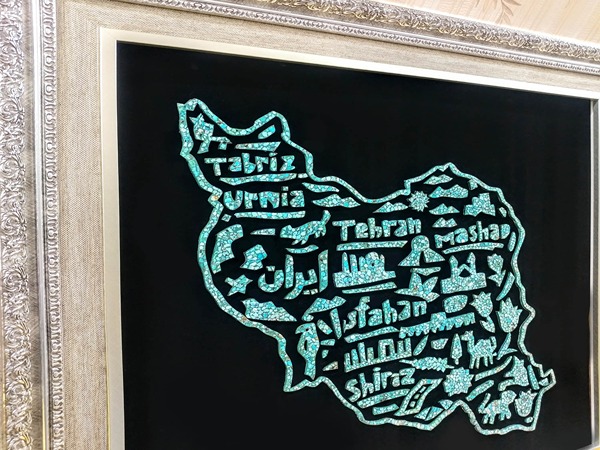 Tabriz
Urnia
Tehran
Mashad
ایران
Isfahan
Shiraz